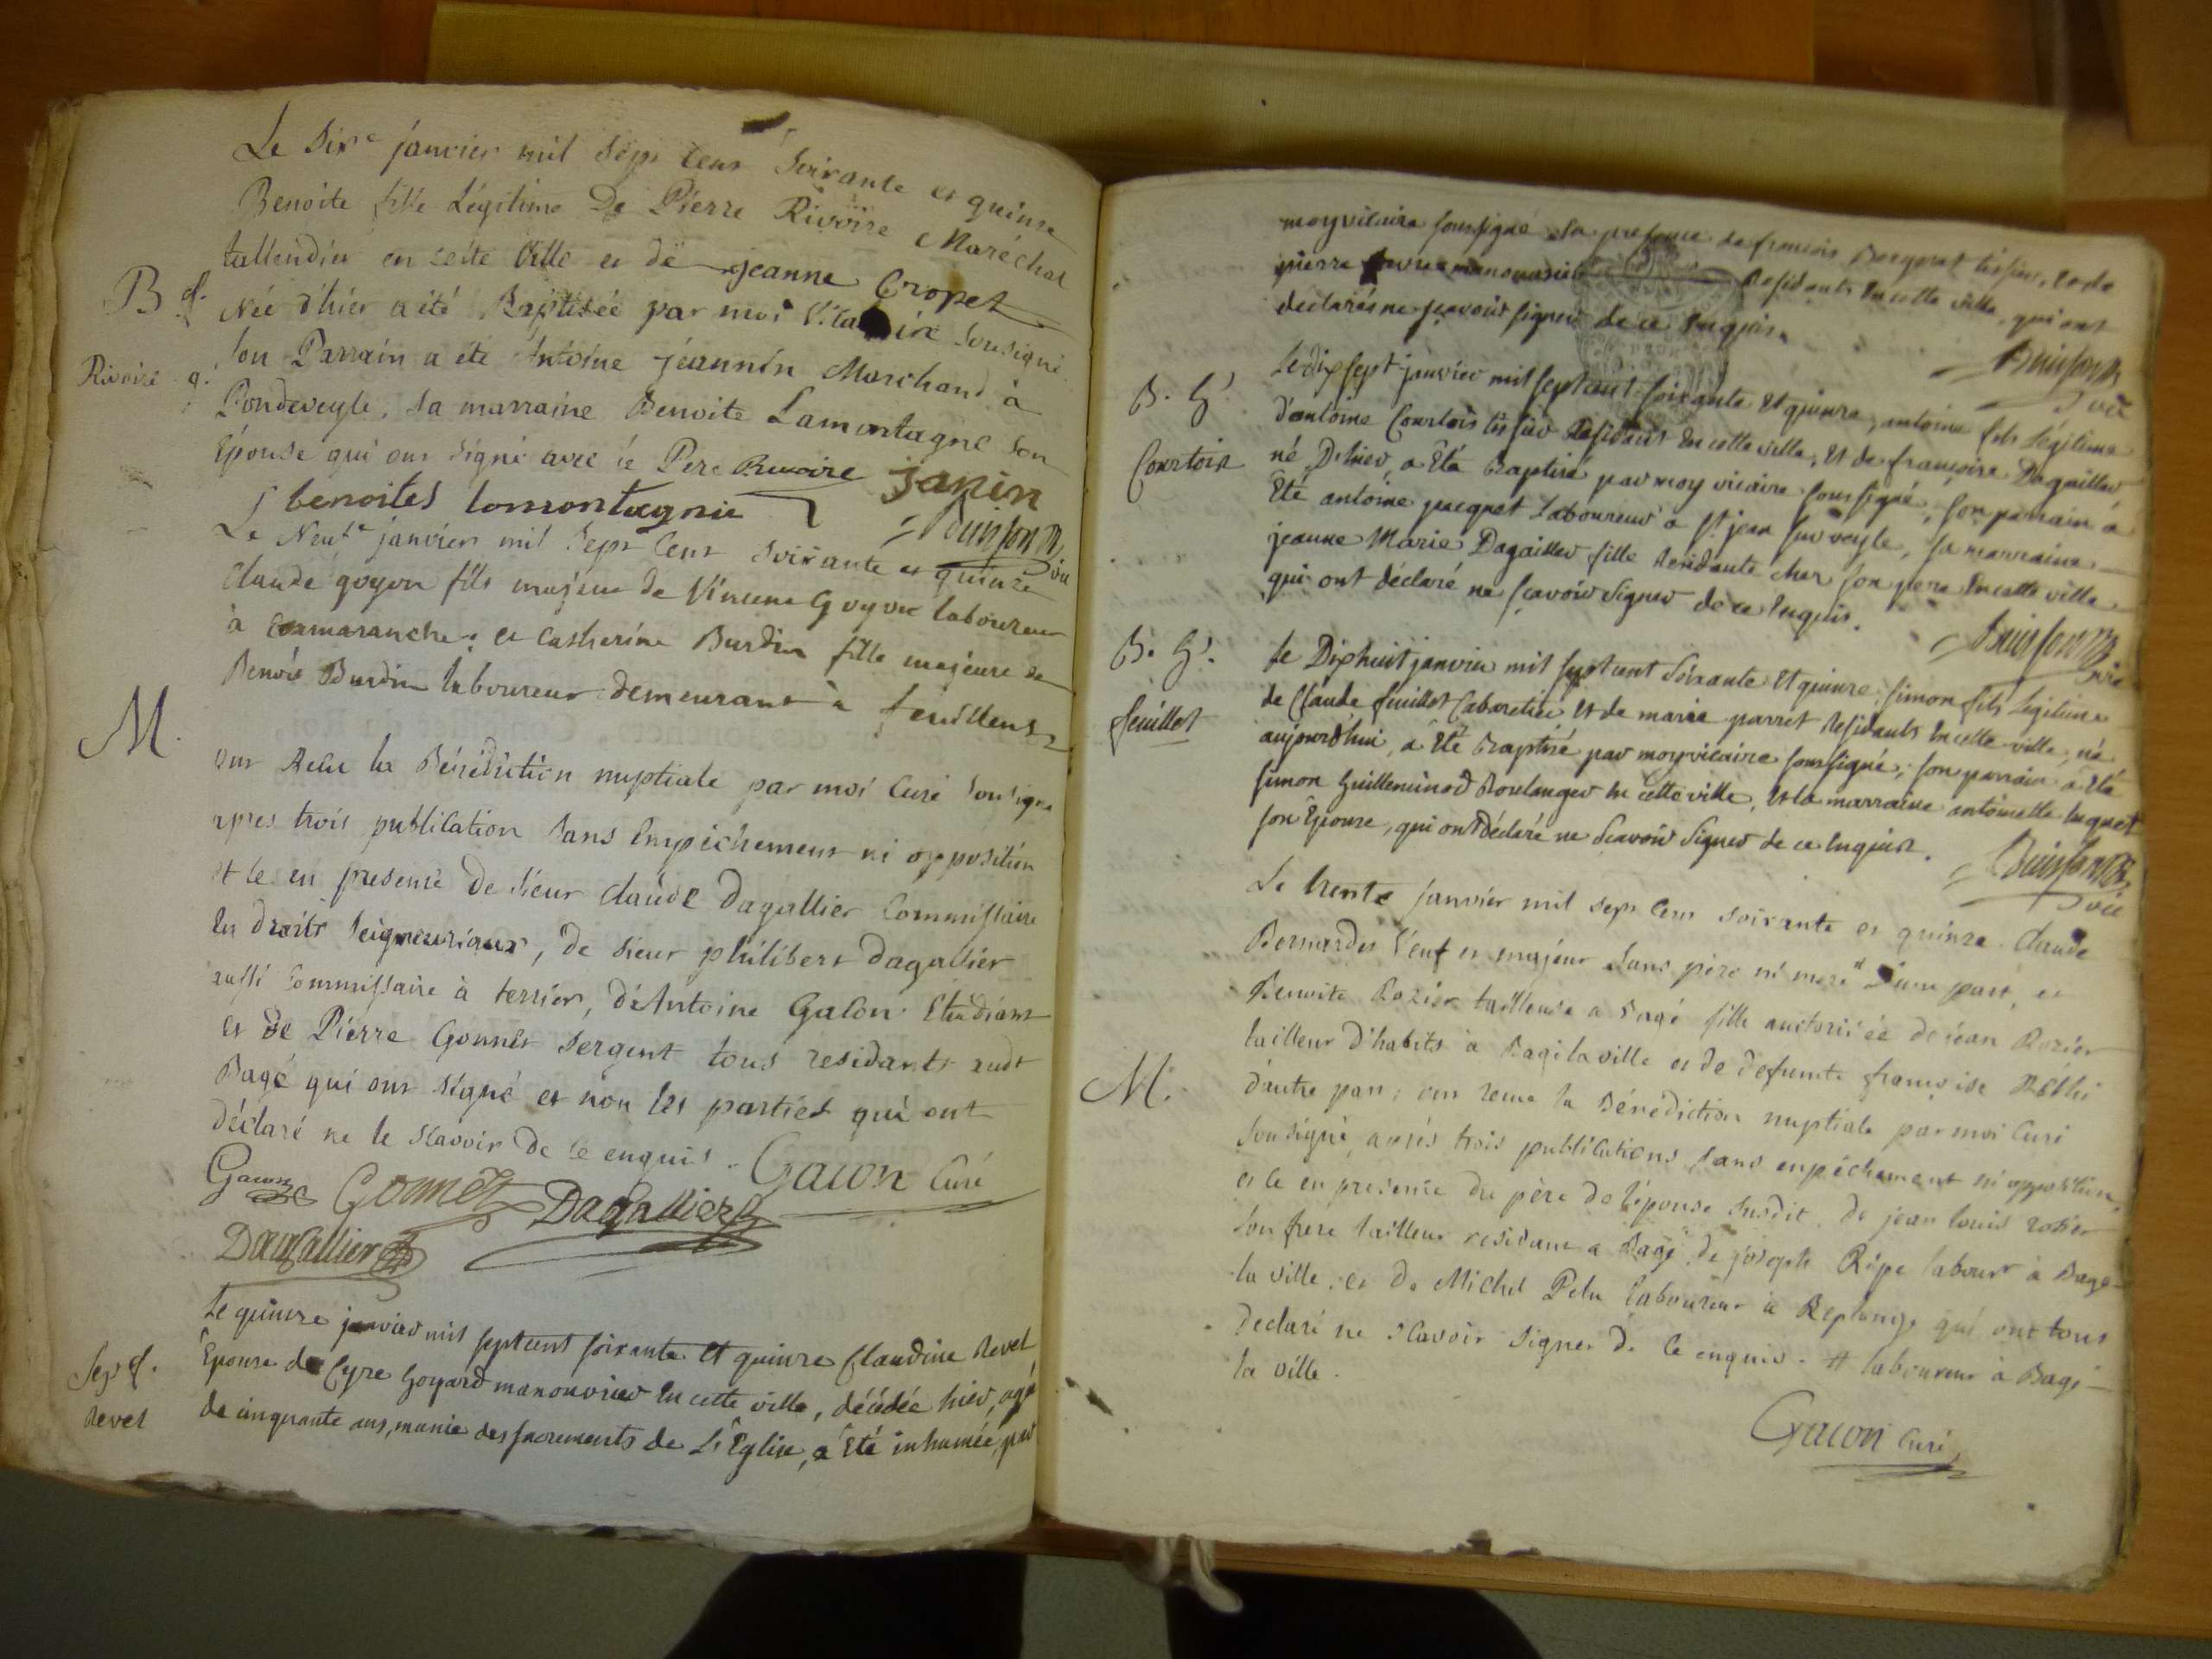 Le Sixe janvier mil Sept Cens Soixante et quinse
Benoite fille Légitime De Pierre Rivoire Maréchal
tallendier en cette Ville et de jeanne Cropet
B f.
Née d'hier a été Baptisée par moi Vicaire Sousigné
Rivoire
Son Parrain a été Antoine jéannin Marchand à
Pondeveyle, Sa marraine Benoite Lamontagne Son
Epouse qui ont Signé avec le Pere Rivoire janin
benoites lamontagnie
Buisson
vic
Le Neufe janvier mil Sept Cens Soixante et quinze
Claude goyon fils majeur de Vincent Goyon laboureur
à Cormaranche, et Catherine Burdin fille majeure de
Benoit Burdin laboureur demeurant à feuillens
M.
ont Recu la Bénédiction nuptiale par moi Curé Sousigné
apres trois publication Sans Empéchement ni opposition
et le en presence De Sieur Claude Dagallier Commissaire
En droits Seigneuriaux, de Sieur philibert Dagallier
aussi Commissaire à terrier, d'Antoine Gacon Etudiant
et de Pierre Gonnet Sergent tous residants audt
Bagé qui ont Signé et non les parties qui ont
déclaré ne le Scavoir De Ce enquis. Gacon Curé
Gacon Gonnet Dagallier
Dagallier
Le quinze janvier mil sept cent soixante et quinze Claudine Revel
Sep f.
Epouse de Cyre Goyard manouvrier En cette ville, décédée hier, agé
Revel
de cinquante ans, munie des sacrements de L'Eglise, a Eté inhumée, par
moy vicaire soussigné en la presence de francois Berprat tissier, et de
pierre favre manouvrier Residants En cette ville, qui ont
declarés ne sçavoir signer de ce Enquis.
Buisson
vic
Le dix sept janvier mil sept cent soixante Et quinze, antoine fils Légitime
B. G.
d'antoine Courtois tissier Residant En cette ville, Et de françoise Dagaillier
Courtois
né D'hier, a Eté Baptisé par moy vicaire soussigné, son parrain à
Eté antoine jacquet Laboureur a St jean sur veyle, sa marraine
jeanne Marie Dagaillier fille Residante chez son pere En cette ville,
qui ont déclaré ne sçavoir signer de ce Enquis.
Buisson
vic
B. G.
Le Dixhuit janvier mil sept cent Soixante Et quinze, simon fils Legitime
feuillet
de Claude feuillet Cabaretier Et de marie parret Residants En cette ville, né
aujourdhui, a Eté Baptisé par moy vicaire soussigné, son parrain a Eté
simon Guilleminod Boulanger En cette ville, Et la marraine antoinette luquet
son Epouse, qui ont déclaré ne Scavoir Signer de ce Enquis.
Buisson
vic
Le trente janvier mil Sept Cens Soixante et quinze. Claude
Bernardet Veuf et majeur Sans père ni mere # D'une part, et
Benoite Rozier tailleuse a Bagé fille auctorisée de jéan Rozier
tailleur d'habits à Bagé la ville et de defunte françoise
M.
d'autre part, ont recu la Bénédiction nuptiale par moi Curé
Sousigné, aprés trois publications Sans empéchement ni opposition,
et le en presence du père de l'épouse Susdit, de jean louis rosier
Son frere tailleur residant a Bagé, de joseph Ripe labourr à Bagé
la ville, et de Michel Pelu laboureur à Replonge qui ont tous
declaré ne Scavoir Signer de Ce enquis. # laboureur à Bagé
la ville.
Gacon Curé